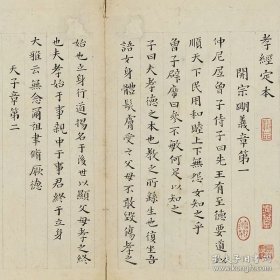 孝經定本
開宗明義章第一
仲尼凥曾子侍子曰先王有至德要道
順天下民用和睦上下無怨女知之乎
曾子辟席曰參不敏何足以知之
子曰夫孝德之本也教之所繇生也復坐吾
語女身體髮膚受之父母不敢毀傷孝之
始也立身行道揚名于後世以顯父母孝之終
也夫孝始于事親中于事君終于立身
大雅云無念爾祖聿脩厥德
天子章第二